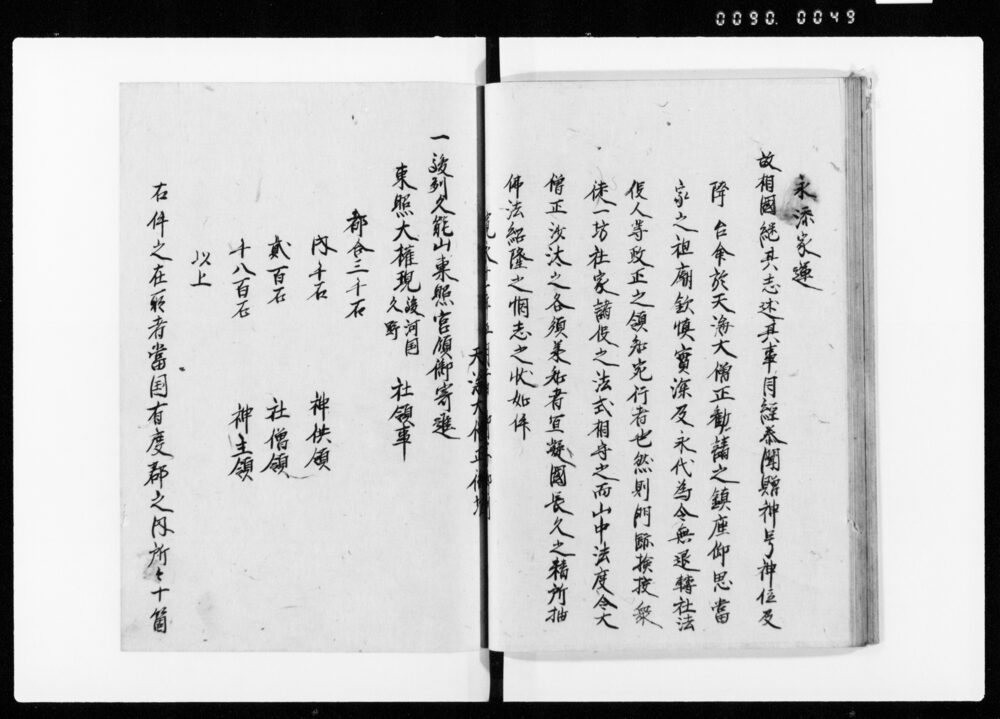 0090. 0049
永添家運
故相國継其志述其事月経叅聞贈神号神位及
降 台命於天海大僧正勸請之鎮座仰思當
家之祖廟欽慎實深及永代為令無退轉社法
役人等改正之領知宛行者也然則門跡検挍衆
徒一坊社家諸役之法式相守之而山中法度令大
僧正沙汰之各須羕知者宜凝國長久之精所抽
佛法紹隆之悃志之状如件
天海大僧正御
一 駿列久能山東照宮領御寄進
東照大権現 駿河国 久野 社領事
都合三千石
内千石 神供領
貳百石 社僧領
千八百石 神主領
以上
右件之在所者當国有度郡之内所々十箇